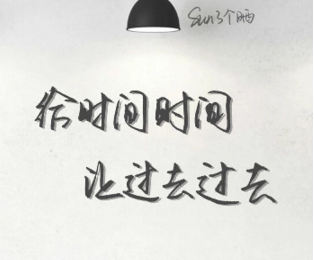 Sun3个日西
给时间时间
让过去过去